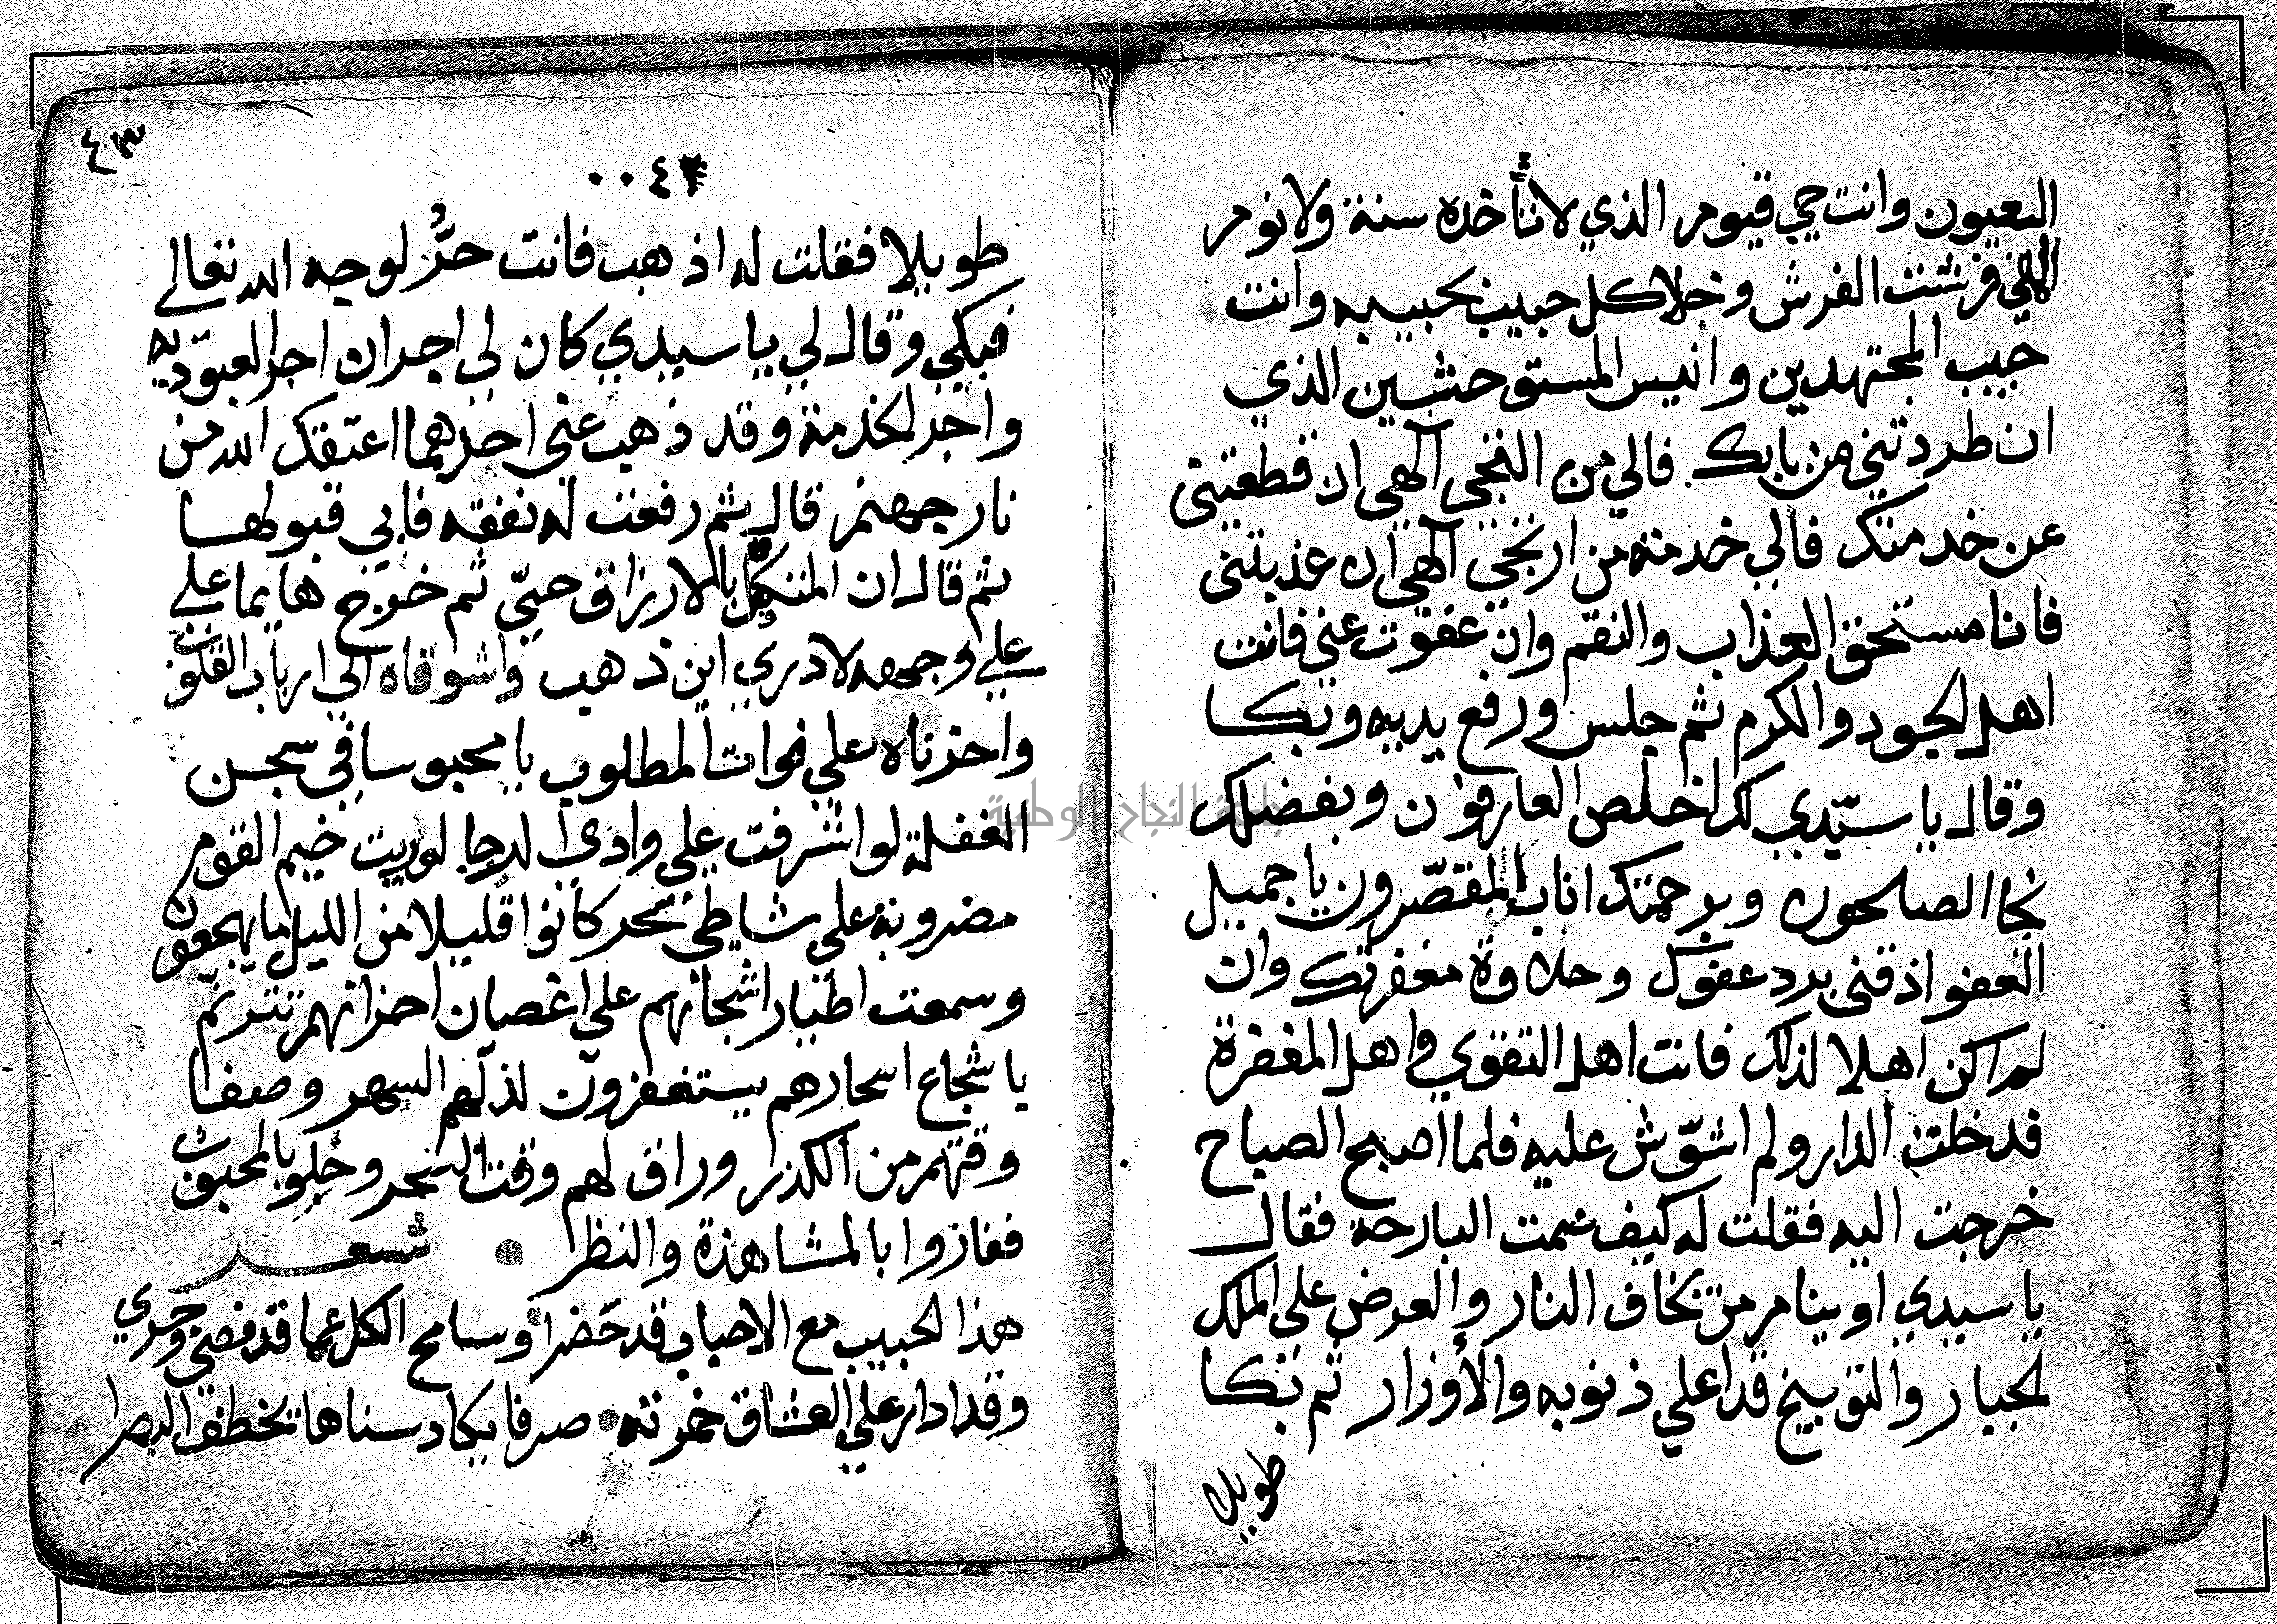 العيون وانت حي قيوم الذي لا تأخذه سنة ولا نوم
الاهي فرشت الفرش وخلا كل حبيب بحبيبه وانت
حبيب المجتهدين وانيس المستوحشين الذي
ان طردتني من بابك فالي من التجي الهي ان قطعتني
عن خدمتك فالي خدمة من ارتجي الهي ان عذبتني
فانا مستحق العذاب والنقم وان عفوت عني فانت
اهل الجود والكرم ثم جلس ورفع يديه وبكا
وقال يا سيّدي لك اخلص العارفون وبفضلك
نجا الصالحون وبرحمتك اناب المقصّرون يا جميل
العفو اذقني برد عفوك وحلاوة مغفرتك وان
لم اكن اهلا لذلك فانت اهل التقوي واهل المغفرة
فدخلت الدار ولم اشوّش عليه فلما اصبح الصباح
خرجت اليه فقلت له كيف نمت البارحة فقال
يا سيدي اوينام من يخاف النار والعرض علي الملك
الجبار والتوبيخ غدا علي ذنوبه والأوزار ثم بكا
طويلا
٤٣
٠٠٤٣
طويلا فقلت له اذهب فانت حرٌّ لوجه الله تعالي
فبكي وقال لي يا سيدي كان لي اجران اجر العبوديه
واجر الخدمة وقد ذهب عني احدهما اعتقك الله من
نار جهنم قال ثم دفعت له نفقه فابي قبولها
ثم قال ان المتكفّل بالارزاق حيّ ثم خرج هايما علي
علي وجهه لا ادري اين ذهب واشوقاه الي ارباب القلوب
واحزناه علي فوات المطلوب يا محبوسا في سجن
الغفلة لو اشرفت علي وادي الدجا لوريت خيم القوم
مضروبة علي شاطي بحر كانوا قليلا من الليل ما يهجعون
وسمعت اطيار اشجانهم علي اغصان احزانهم تترنم
يا شجاع اسحارهم يستغفرون لذلهم السهر وصفا
وقتهم من الكدر وراق لهم وقت السحر وخلو بالمحبوب
ففازوا بالمشاهدة والنظر شعر
هذا الحبيب مع الاحباب قد حضرا وسامح الكل عما قد مضي وجري
وقد ادار علي العشاق خمرته صرفا يكاد سناها يخطف البصرا
جامعة النجاح الوطنية